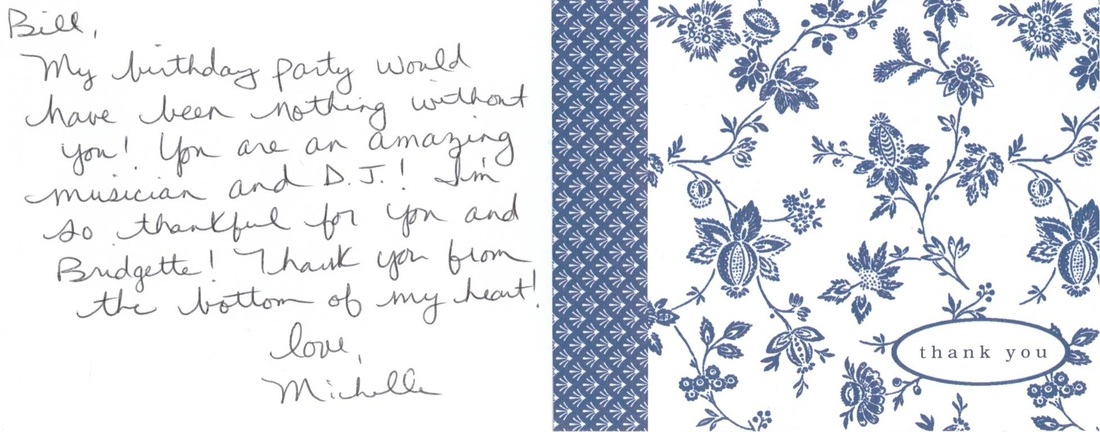 Bill,
My birthday party would
have been nothing without
you! You are an amazing
musician and D.J.! I'm
so thankful for you and
Bridgette! Thank you from
the bottom of my heart!
love,
Michelle
thank you